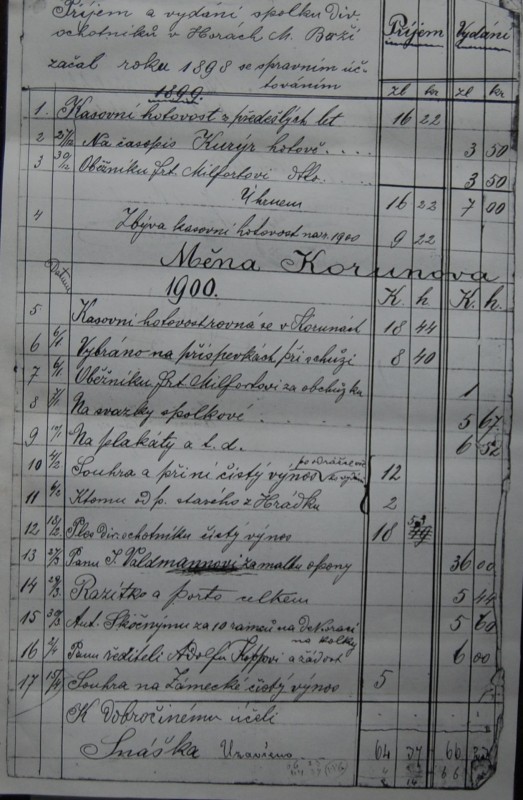 Příjem a vydání spolku Div. Příjem Vydání
ochotníků v Horách M. Boží
začal roku 1898 se spravním úč-
továním zl kr zl kr
1899.
1 Kasovní hotovost z předešlých let 16 22
2 27/12 Na časopis Kurýr hotově 3 50
3 30/12 Oběžníku frt. Milfortovi dto. 3 50
Úhrnem 16 22 7 00
4 Zbývá kasovní hotovost na r. 1900 9 22
Měna Korunova
Datum 1900. K h K. h.
5 Kasovní hotovost rovná se v Korunách 18 44
6 6/1 Vybráno na příspěvkách při schůzi 8 40
7 6/1 Oběžníku frt. Milfortovi za obchůzku 1
8 Na svazky spolkové 5 67
9 Na plakáty a t. d. 6 52
10 4/2 Souhra a přiní čistý výnos 12
11 Ktomu od p. starého z Hrádku 2
12 Ples Div. ochotníku čistý výnos 18
13 27/3 Panu J. Valdmannovi za malbu opony 36 00
14 29/3 Razítko a porto celkem 5 44
15 30/3 Ant. Skočnýmu za 10 rámců na dekoraci 5 60
na kolky
16 2/4 Panu řediteli Adolfu Koppovi a žádost 6 00
17 15/4 Souhra na Zámecké čistý výnos 5
K Dobročinému účeli
Snáška Uzavřeno 64 66